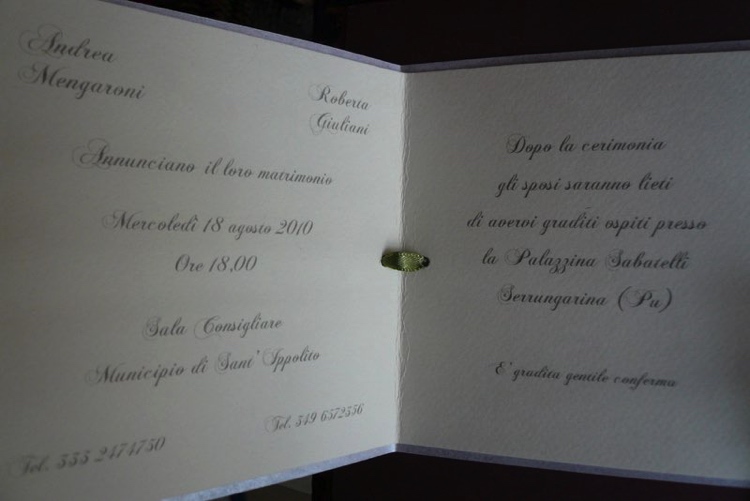 Andrea
Mengaroni
Roberta
Giuliani
Annunciano il loro matrimonio
Mercoledì 18 agosto 2010
Ore 18,00
Sala Consigliare
Municipio di Sant' Ippolito
Tel. 333 2474730
Tel. 349 6572336
Dopo la cerimonia
gli sposi saranno lieti
di avervi graditi ospiti presso
la Palazzina Sabatelli
Serrungarina (Pu)
E' gradita gentile conferma